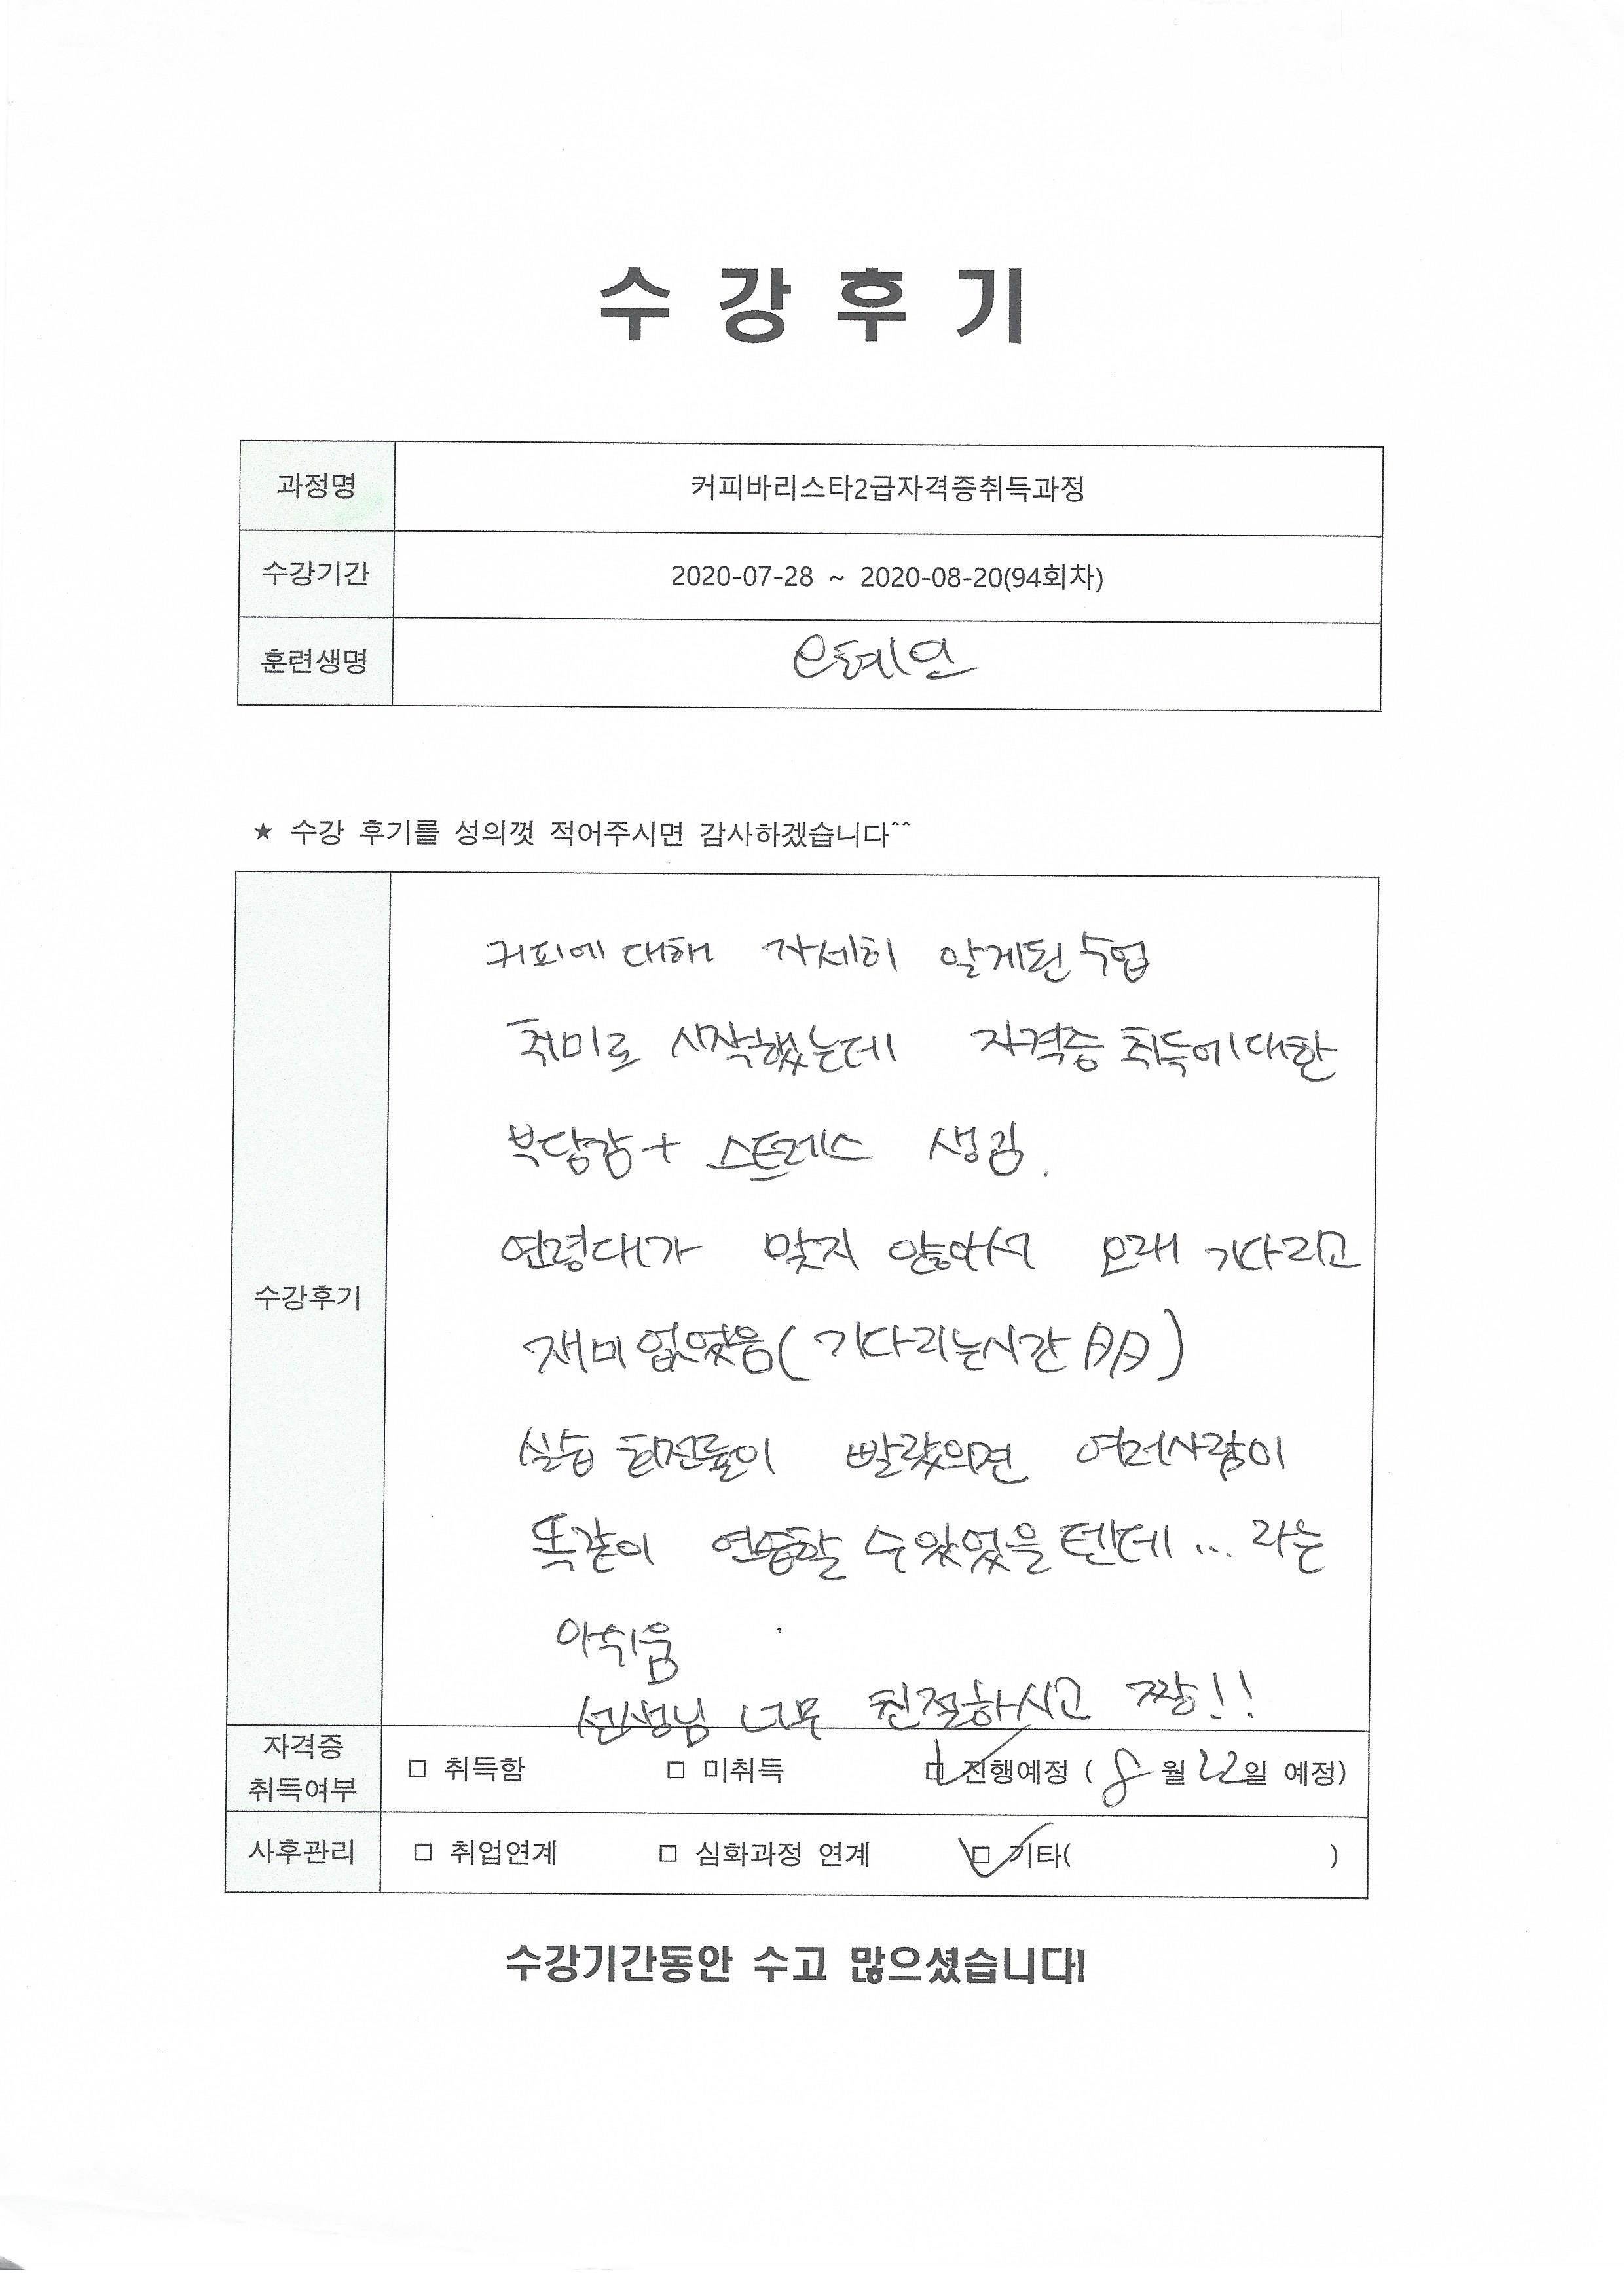 수 강 후 기
과정명 커피바리스타2급자격증취득과정
수강기간 2020-07-28 ~ 2020-08-20(94회차)
훈련생명
★ 수강 후기를 성의껏 적어주시면 감사하겠습니다^^
수강후기
커피에 대해 자세히 알게된 수업
취미로 시작했는데 자격증 취득에대한
부담감 + 스트레스 생김.
연령대가 맞지 않아서 오래 기다리고
재미 없었음 (기다리는시간 ㅠㅠ)
실습 회전률이 빨랐으면 여러사람이
똑같이 연습할 수 있었을 텐데... 라는
아쉬움
선생님 너무 친절하시고 짱!!
자격증 취득여부 □ 취득함 □ 미취득 □ 진행예정 ( 8 월 22일 예정)
사후관리 □ 취업연계 □ 심화과정 연계 □ 기타( )
수강기간동안 수고 많으셨습니다!